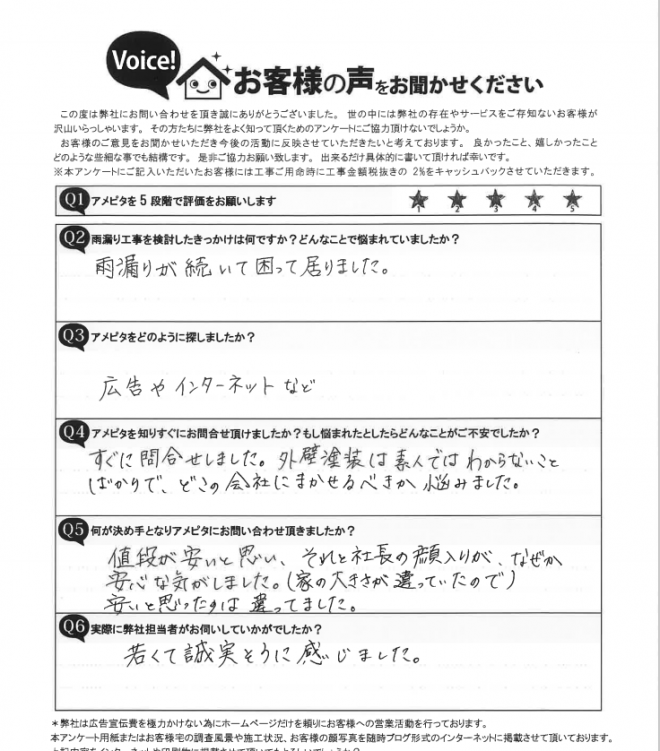 Voice!
お客様の声をお聞かせください
この度は弊社にお問い合わせを頂き誠にありがとうございました。 世の中には弊社の存在やサービスをご存知ないお客様が
沢山いらっしゃいます。 その方たちに弊社をよく知って頂くためのアンケートにご協力頂けないでしょうか。
お客様のご意見をお聞かせいただき今後の活動に反映させていただきたいと考えております。 良かったこと、嬉しかったこと
どのような些細な事でも結構です。 是非ご協力お願い致します。 出来るだけ具体的に書いて頂ければ幸いです。
※本アンケートにご記入いただいたお客様には工事ご用命時に工事金額税抜きの 2%をキャッシュバックさせていただきます。
Q1 アメピタを5段階で評価をお願いします
1 2 3 4 5
Q2 雨漏り工事を検討したきっかけは何ですか?どんなことで悩まれていましたか?
雨漏りが続いて困って居りました。
Q3 アメピタをどのように探しましたか?
広告やインターネットなど
Q4 アメピタを知りすぐにお問合せ頂けましたか?もし悩まれたとしたらどんなことがご不安でしたか?
すぐに問合せしました。外壁塗装は素人ではわからないこと
ばかりで、どこの会社にまかせるべきか悩みました。
Q5 何が決め手となりアメピタにお問い合わせ頂きましたか?
値段が安いと思い、それと社長の顔入りが、なぜか
安心な気がしました。(家の大きさが違っていたので)
安いと思ったのは違ってました。
Q6 実際に弊社担当者がお伺いしていかがでしたか?
若くて誠実そうに感じました。
*弊社は広告宣伝費を極力かけない為にホームページだけを頼りにお客様への営業活動を行っております。
本アンケート用紙またはお客様宅の調査風景や施工状況、お客様の顔写真を随時ブログ形式のインターネットに掲載させて頂いております。